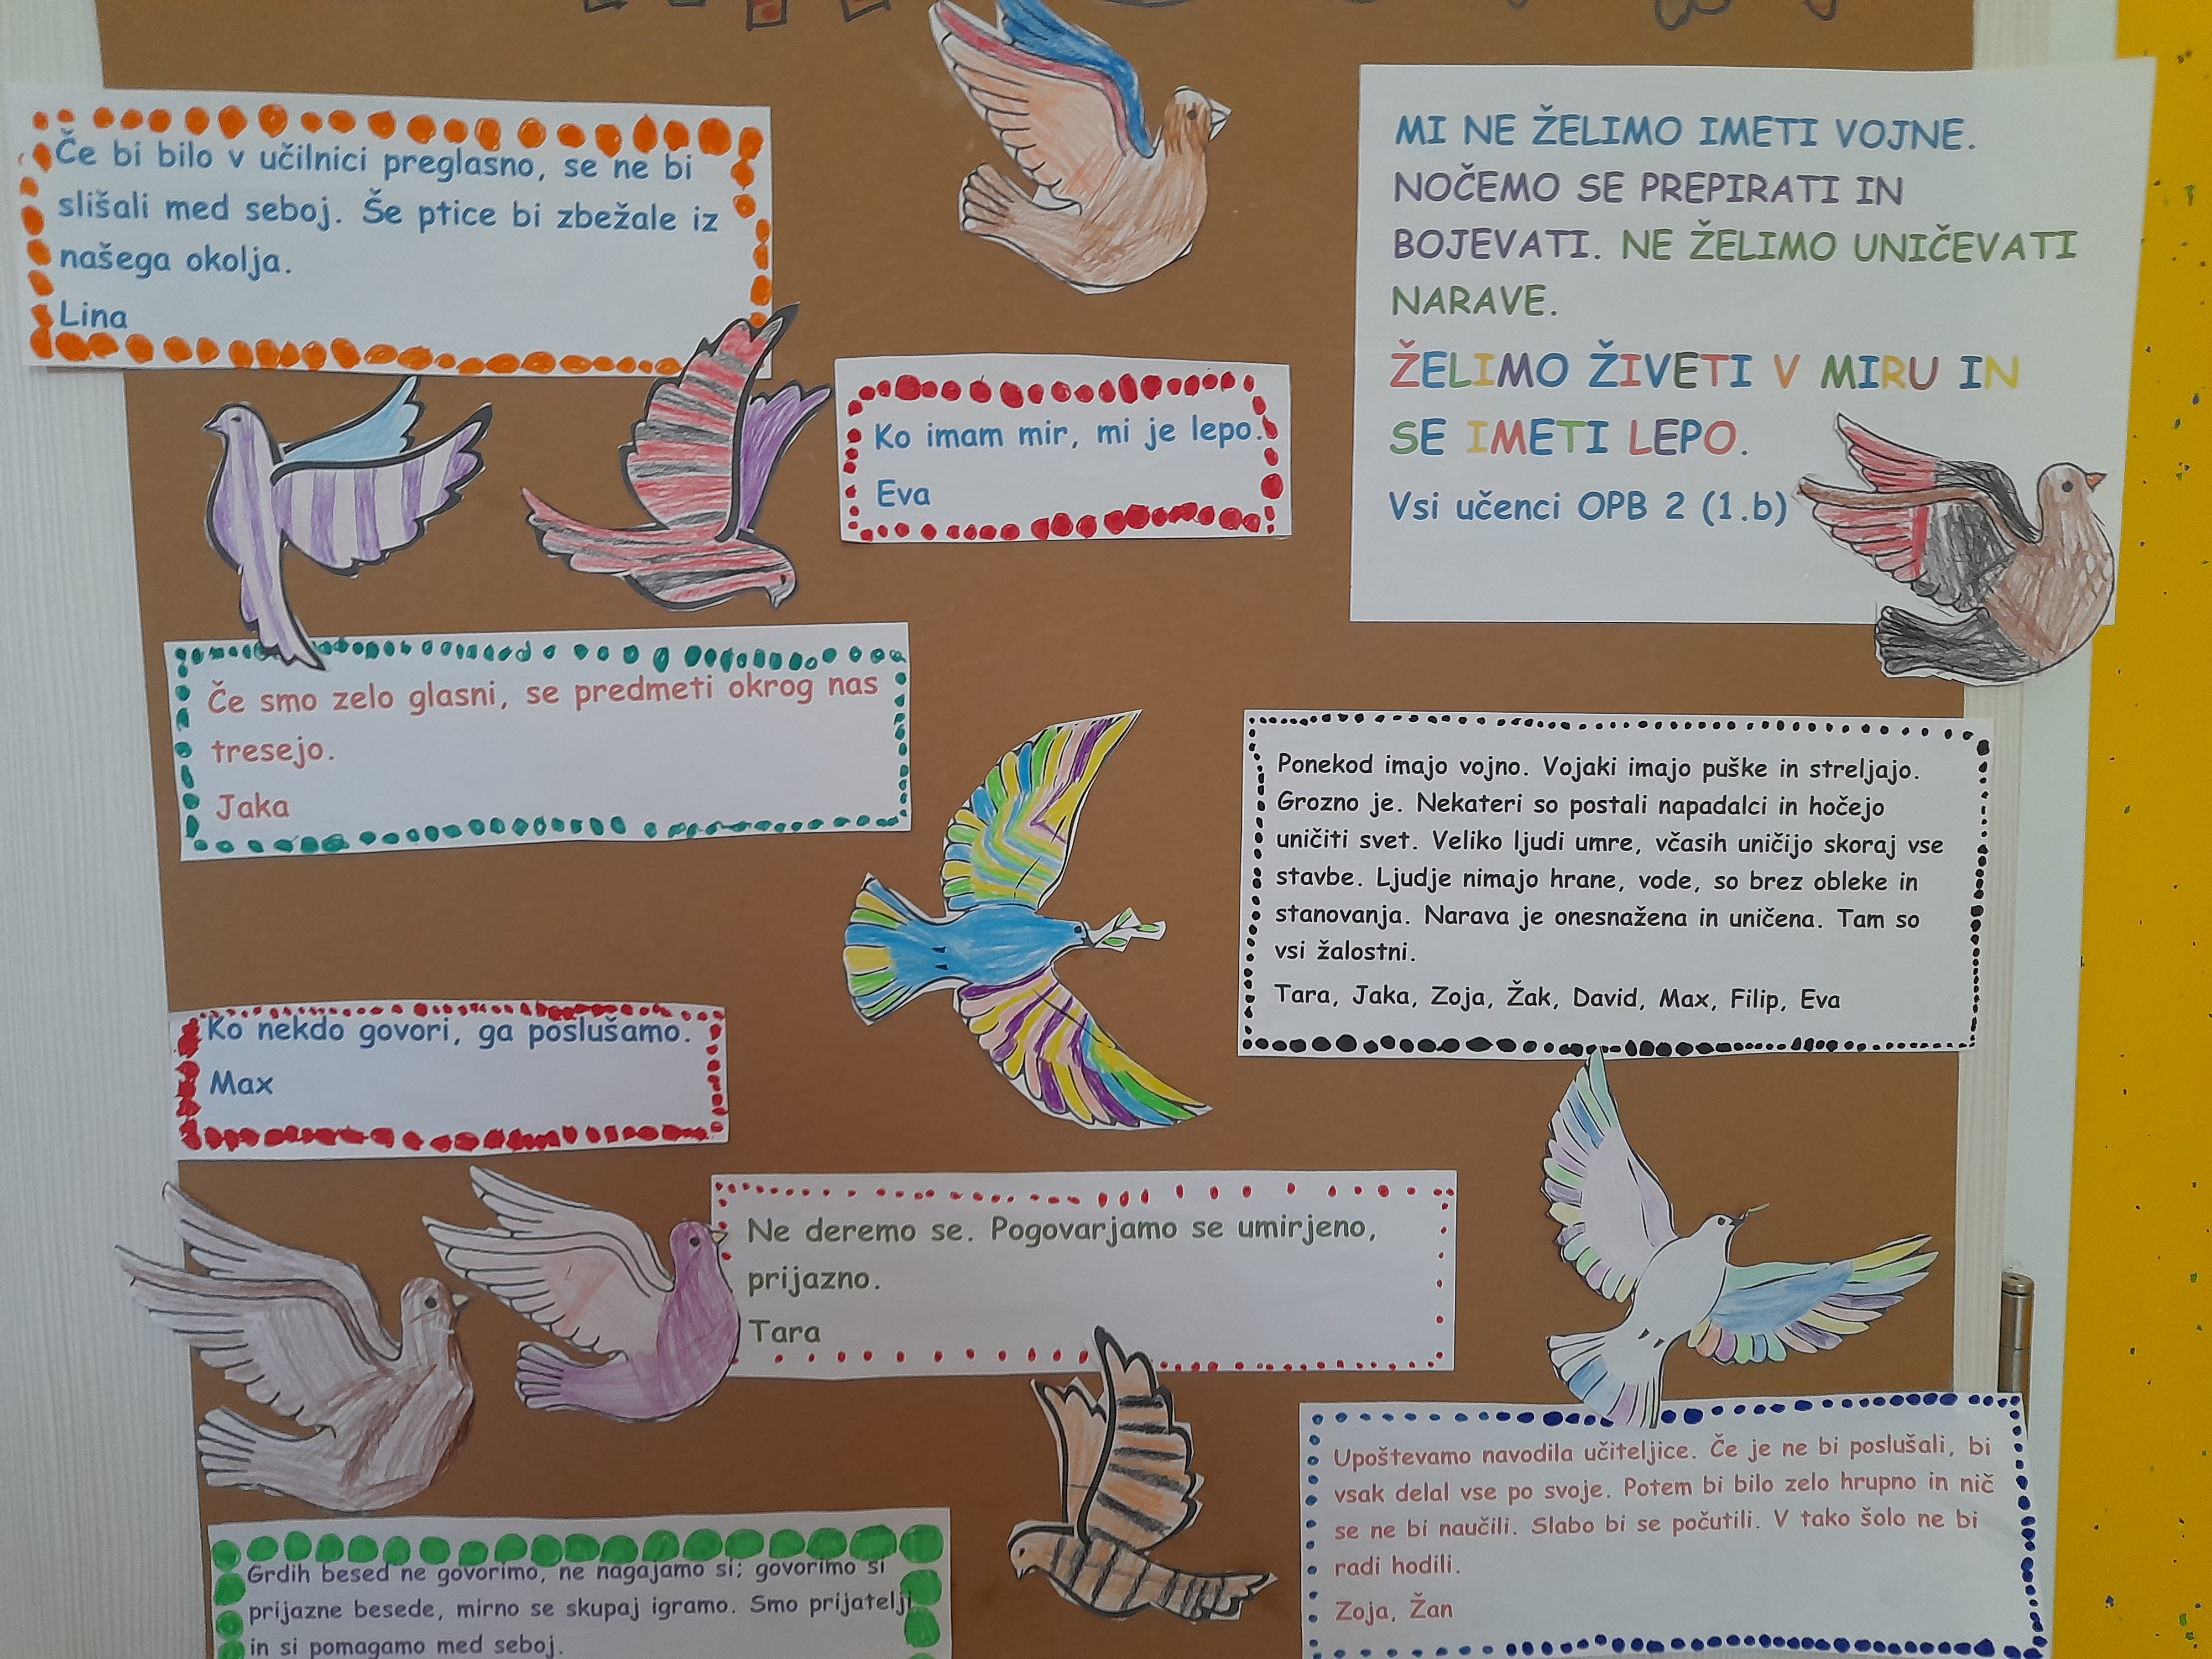 Če bi bilo v učilnici preglasno, se ne bi
slišali med seboj. Še ptice bi zbežale iz
našega okolja.
Lina
MI NE ŽELIMO IMETI VOJNE.
NOČEMO SE PREPIRATI IN
BOJEVATI. NE ŽELIMO UNIČEVATI
NARAVE.
ŽELIMO ŽIVETI V MIRU IN
SE IMETI LEPO.
Vsi učenci OPB 2 (1.b)
Ko imam mir, mi je lepo.
Eva
Če smo zelo glasni, se predmeti okrog nas
tresejo.
Jaka
Ponekod imajo vojno. Vojaki imajo puške in streljajo.
Grozno je. Nekateri so postali napadalci in hočejo
uničiti svet. Veliko ljudi umre, včasih uničijo skoraj vse
stavbe. Ljudje nimajo hrane, vode, so brez obleke in
stanovanja. Narava je onesnažena in uničena. Tam so
vsi žalostni.
Tara, Jaka, Zoja, Žak, David, Max, Filip, Eva
Ko nekdo govori, ga poslušamo.
Max
Ne deremo se. Pogovarjamo se umirjeno,
prijazno.
Tara
Upoštevamo navodila učiteljice. Če je ne bi poslušali, bi
vsak delal vse po svoje. Potem bi bilo zelo hrupno in nič
se ne bi naučili. Slabo bi se počutili. V tako šolo ne bi
radi hodili.
Zoja, Žan
Grdih besed ne govorimo, ne nagajamo si; govorimo si
prijazne besede, mirno se skupaj igramo. Smo prijatelji
in si pomagamo med seboj.